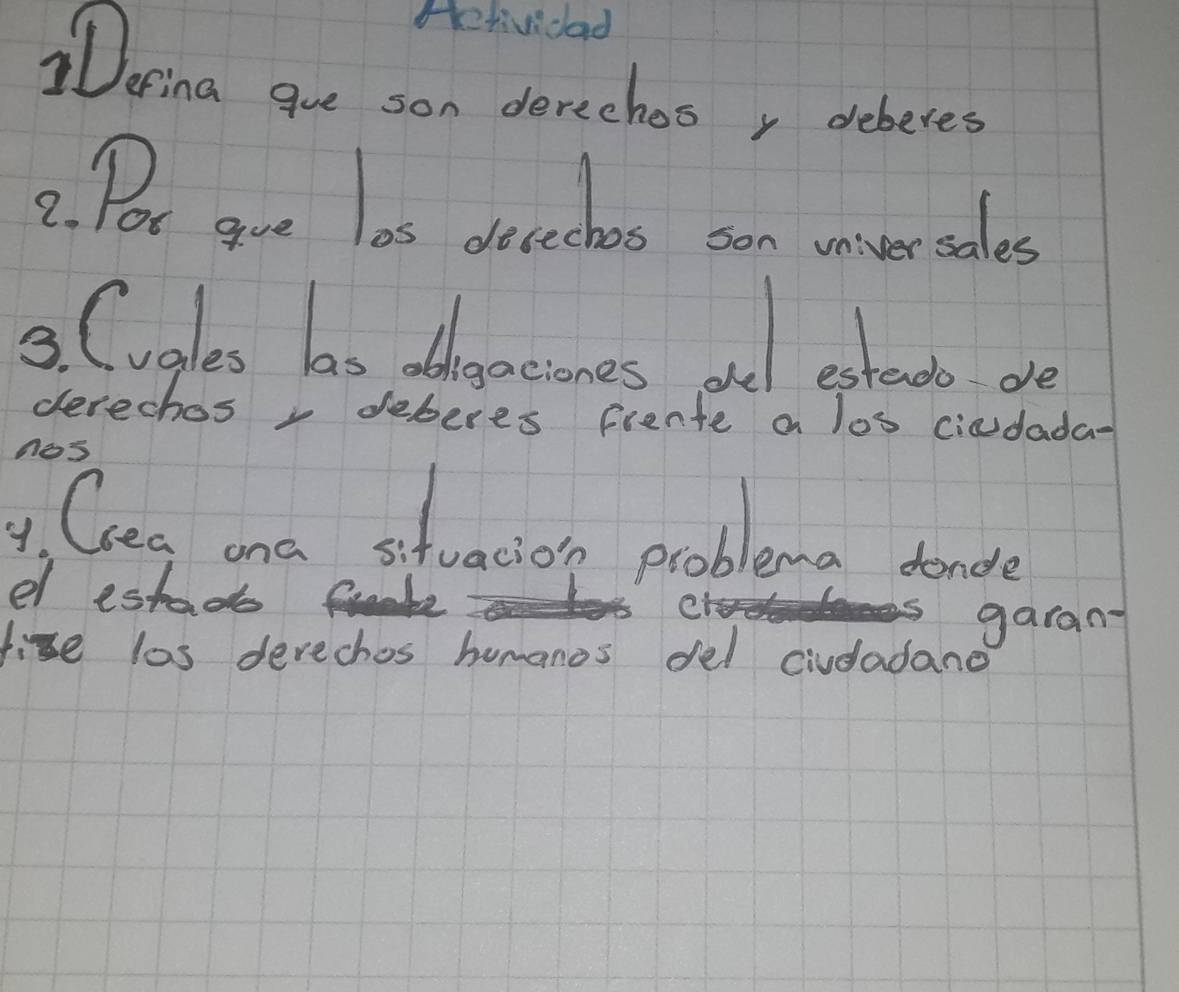 Actividad
1 Defina que son derechos y deberes
2. Por que los derechos son universales
3. Cuales las obligaciones del estado de
derechos y deberes frente a los ciudada-
nos
4. Crea una situación problema donde
el estado garan-
tise los derechos humanos del ciudadano